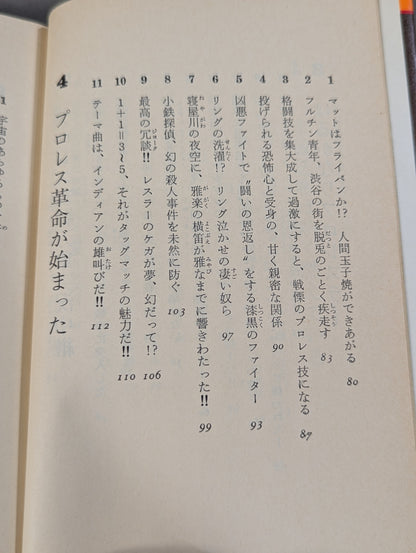 1 マットはフライパンか!? 人間玉子焼ができあがる 80
2 フルチン青年、渋谷の街を脱兎のごとく疾走す 83
3 格闘技を集大成して過激にすると、戦慄のプロレス技になる 87
4 投げられる恐怖心と受身の、甘く親密な関係 90
5 凶悪ファイトで〝闘いの恩返し〟をする漆黒のファイター 93
6 リングの洗濯!? リング泣かせの凄い奴ら 97
7 寝屋川の夜空に、雅楽の横笛が雅なまでに響きわたった!! 99
8 小鉄探偵、幻の殺人事件を未然に防ぐ 103
9 最高の冗談!! レスラーのケガが夢、幻だって!? 106
10 1+1=3~5、それがタッグマッチの魅力だ!! 110
11 テーマ曲は、インディアンの雄叫びだ!! 112
4 プロレス革命が始まった
1 宇宙の